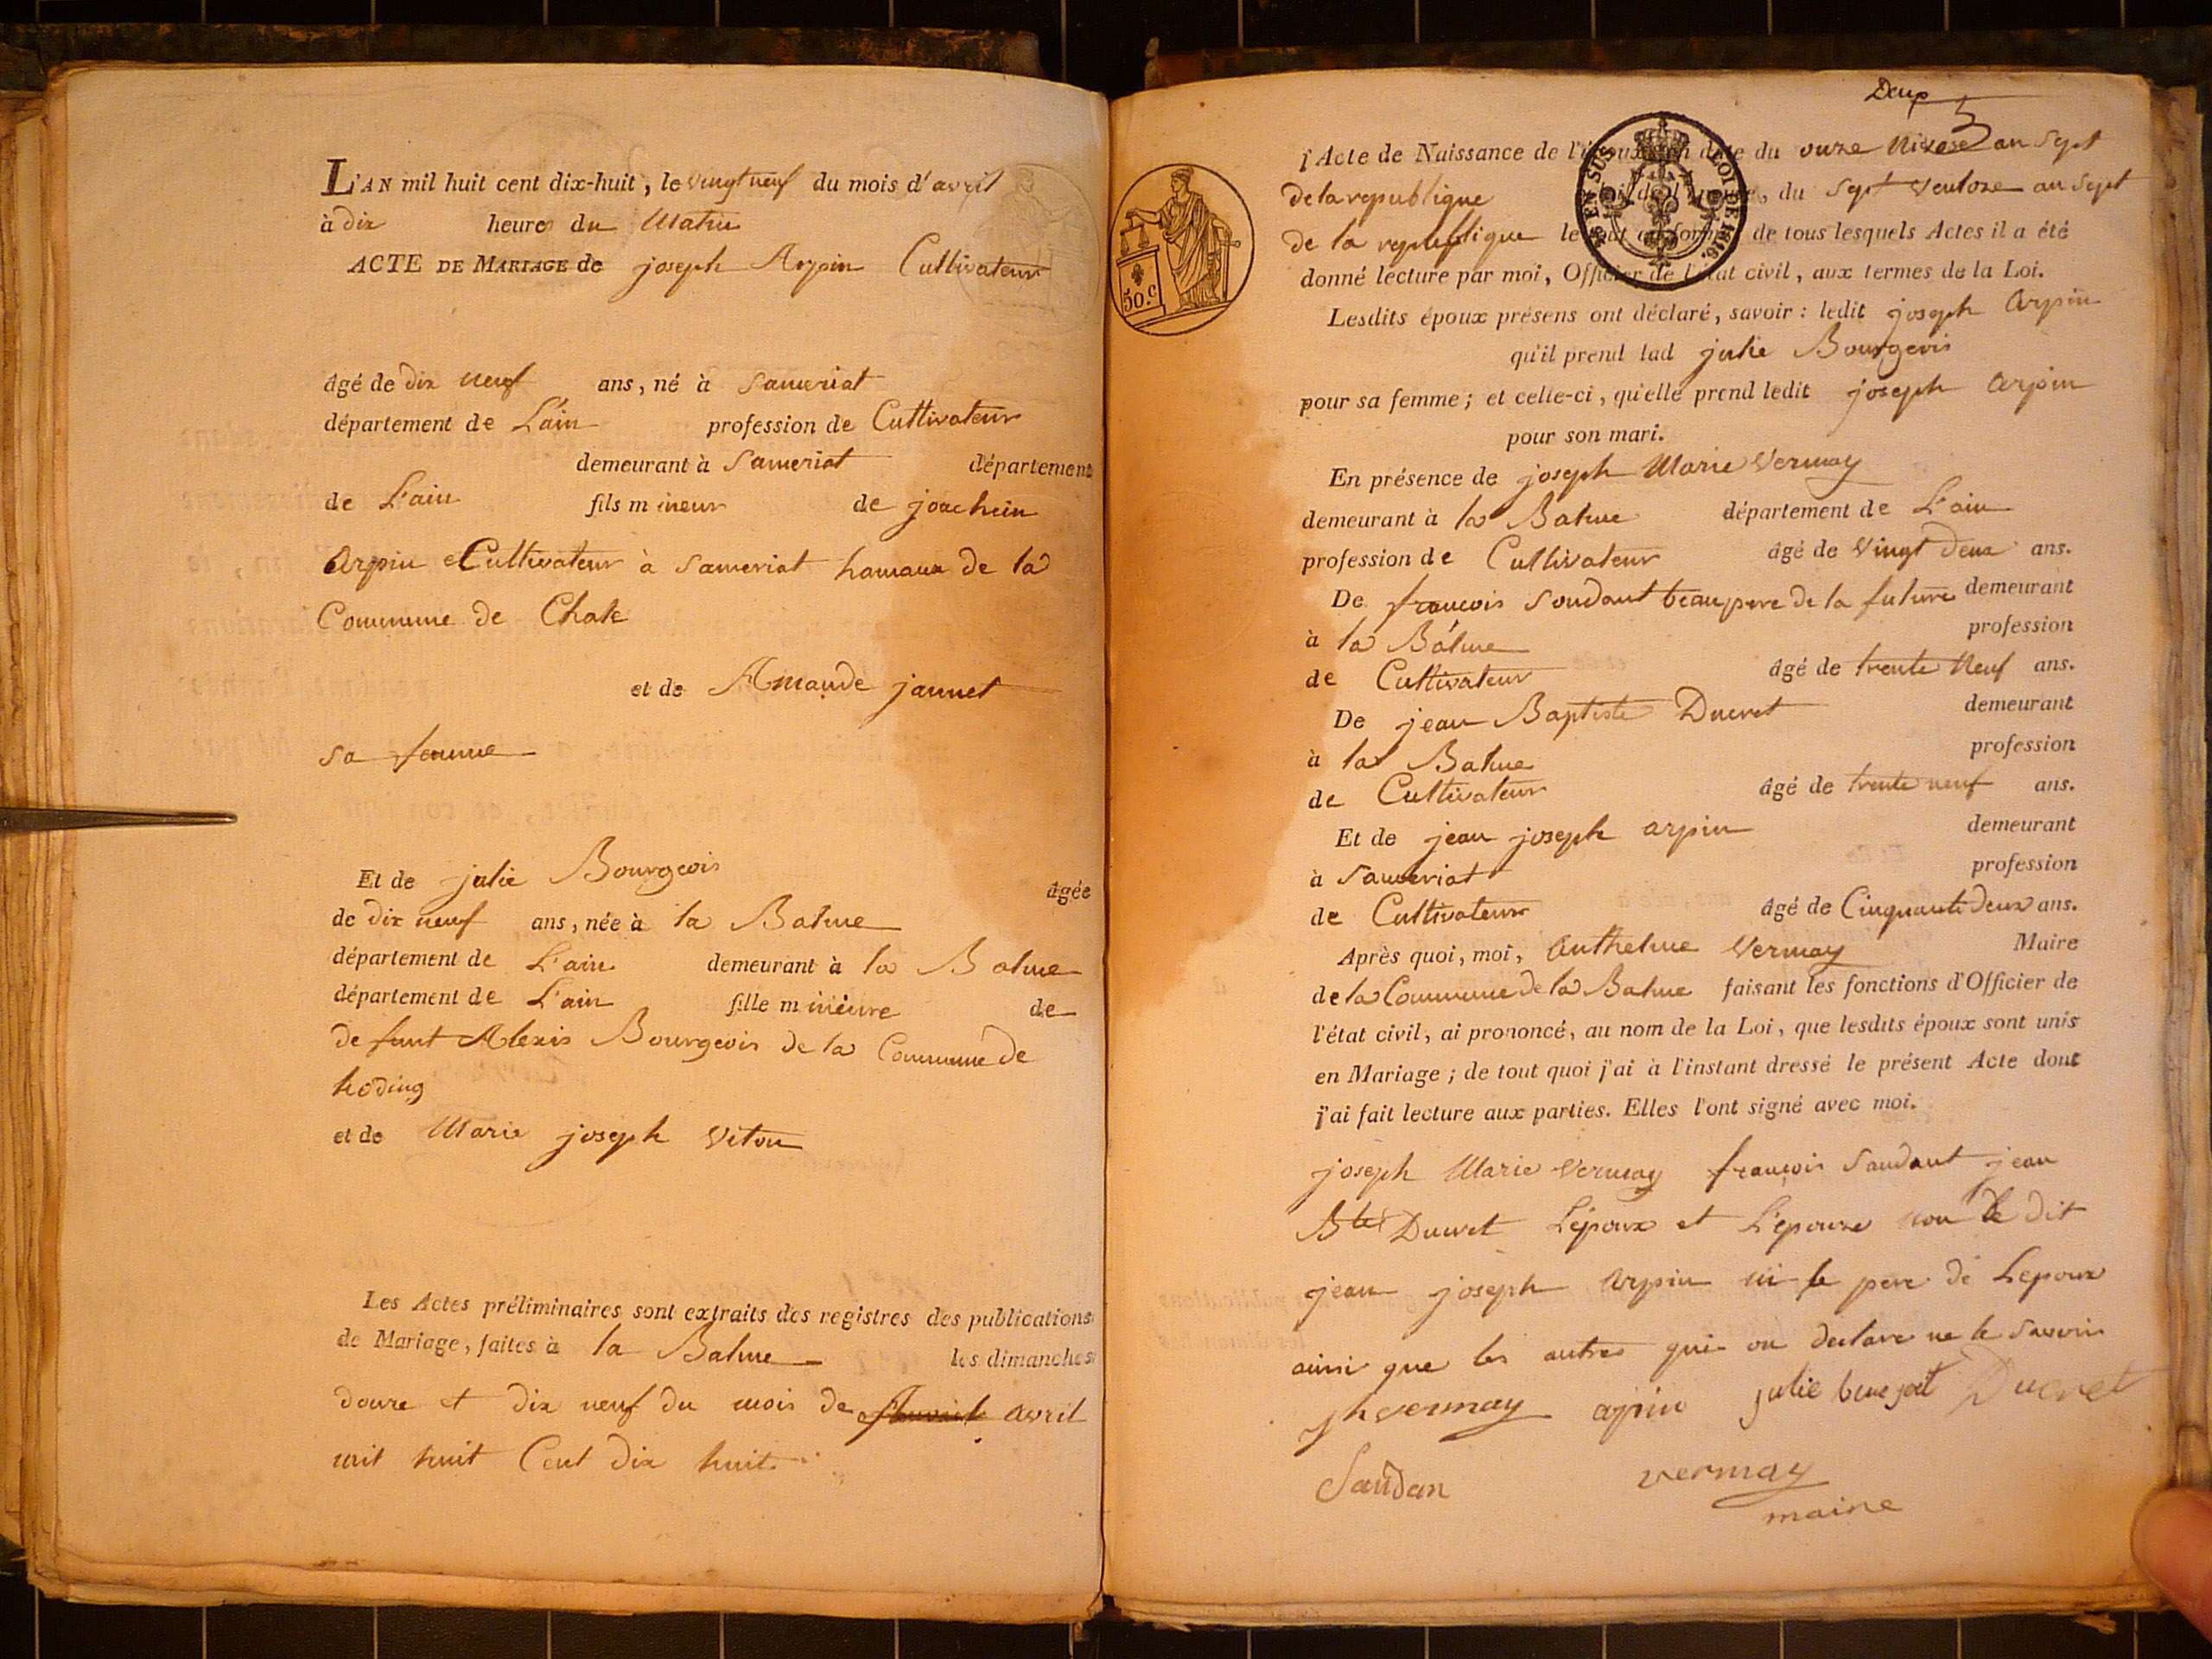 L'AN mil huit cent dix-huit, le vingt neuf du mois d'avril
à dix heures du Matin
ACTE DE MARIAGE de joseph Arpin Cultivateur
âgé de dix neuf ans, né à Sameriat
département de L'ain profession de Cultivateur
demeurant à Sameriat département
de L'ain fils mineur de joachim
Arpin Cultivateur à Sameriat hamaux de la
Commune de Chale
et de Amande jannet
sa femme
Et de julie Bourgeois âgée
de dix neuf ans, née à la Balme
département de L'ain demeurant à la Balme
département de L'ain fille mineure de
defunt Alexis Bourgeois de la Commune de
et de Marie joseph Viton
Les Actes préliminaires sont extraits des registres des publications
de Mariage, faites à la Balme les dimanches
douze et dix neuf du mois de avril
mil huit Cent dix huit.
Deux
l'Acte de Naissance de l'épouse en date du onze Nivose an Sept
de la republique du Sept Ventose an Sept
de la republique le tout en forme de tous lesquels Actes il a été
donné lecture par moi, Officier de l'état civil, aux termes de la Loi.
EN SUS LOI DE 1816.
50.c
Lesdits époux présens ont déclaré, savoir : ledit joseph Arpin
qu'il prend lad julie Bourgeois
pour sa femme ; et celle-ci, qu'elle prend ledit joseph Arpin
pour son mari.
En présence de joseph Marie Vermay
demeurant à la Balme département de L'ain
profession de Cultivateur âgé de Vingt deux ans.
De françois Soudant beaupere de la future demeurant
à la Balme profession
de Cultivateur âgé de trente Neuf ans.
De jean Baptiste Ducret demeurant
à la Balme profession
de Cultivateur âgé de trente neuf ans.
Et de jean joseph arpin demeurant
à Sameriat profession
de Cultivateur âgé de Cinquante deux ans.
Après quoi, moi, Anthelme Vermay Maire
de la Commune de la Balme faisant les fonctions d'Officier de
l'état civil, ai prononcé, au nom de la Loi, que lesdits époux sont unis
en Mariage ; de tout quoi j'ai à l'instant dressé le présent Acte dont
j'ai fait lecture aux parties. Elles l'ont signé avec moi.
joseph Marie Vermay françois Saudant jean
Bte Ducret L'époux et L'épouse non le dit
jean joseph Arpin ni le pere de Lepoux
ainsi que les autres qui on declare ne le Savoir
jh vermay arpin julie Ducret
Saudan vermay
maire